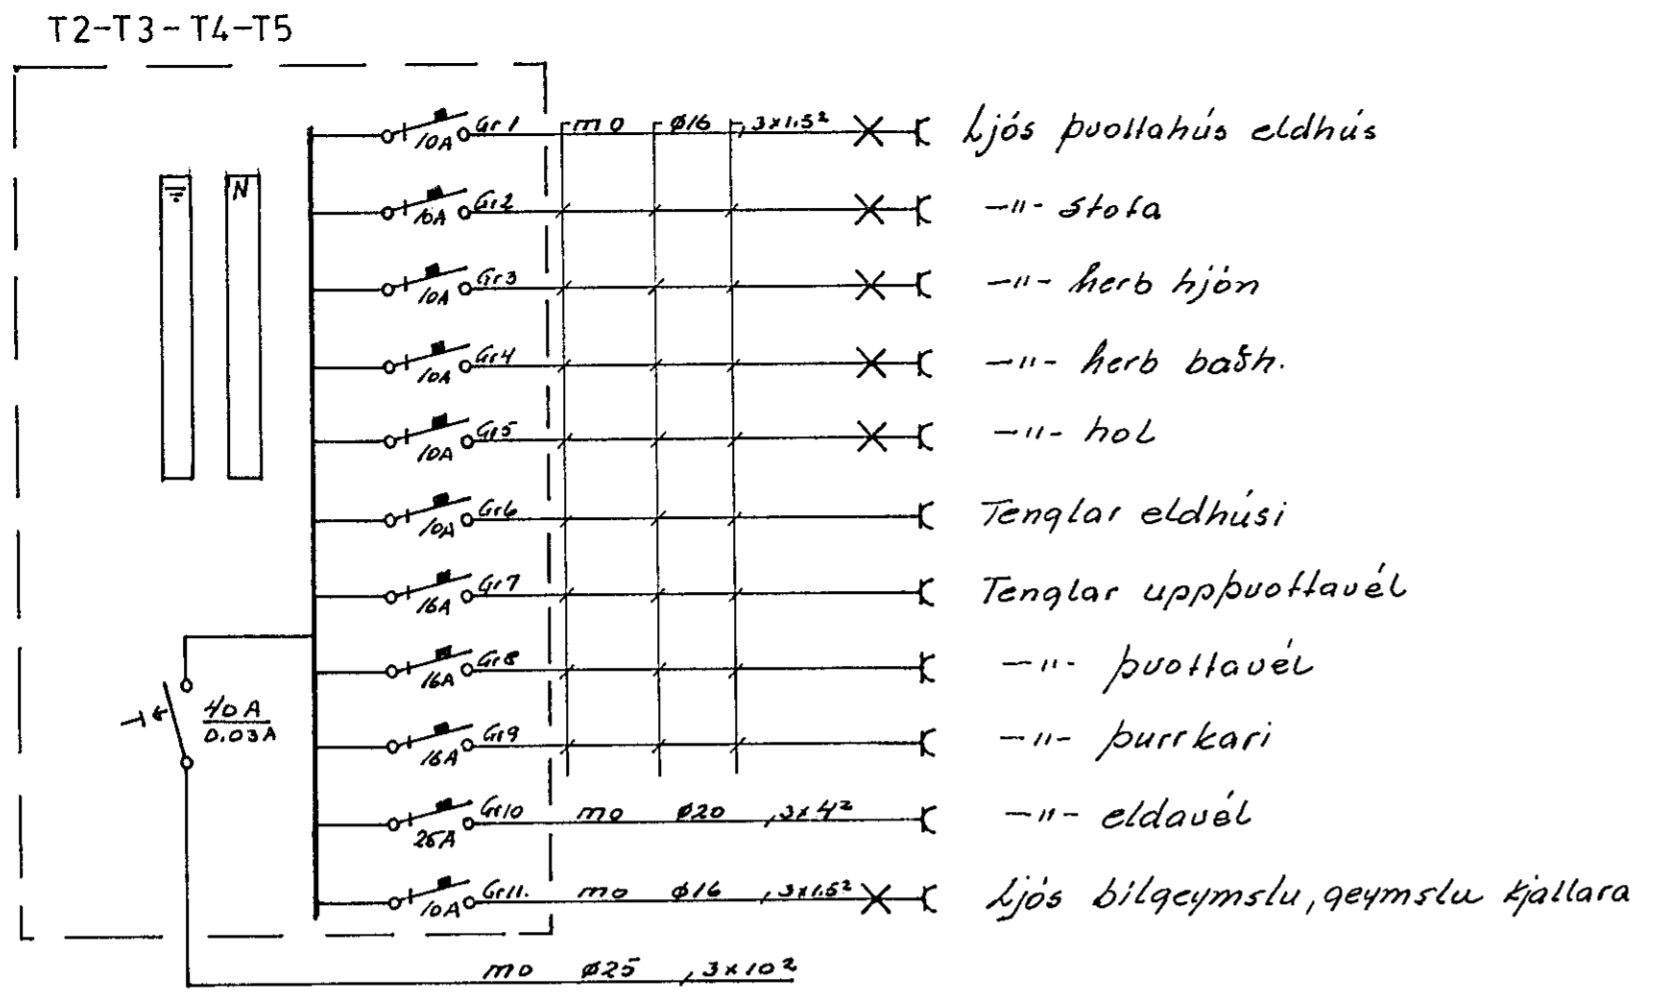 T2-T3-T4-T5
10A Gr1 mo ø16 3x1.5² Ljós þvottahús eldhús
N
10A Gr2 -"- stofa
10A Gr3 -"- herb hjón
10A Gr4 -"- herb baðh.
10A Gr5 -"- hol
10A Gr6 Tenglar eldhúsi
16A Gr7 Tenglar uppþvottavél
16A Gr8 -"- þvottavél
40A
0.03A
16A Gr9 -"- þurrkari
25A Gr10 mo ø20 3x4² -"- eldavél
10A Gr11. mo ø16 3x1.5² Ljós bílgeymslu, geymslu kjallara
mo ø25 3x10²